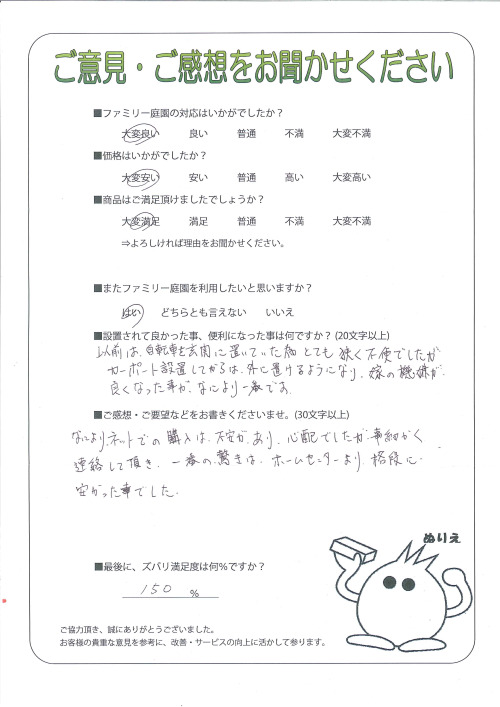 ご意見・ご感想をお聞かせください
■ファミリー庭園の対応はいかがでしたか？
大変良い 良い 普通 不満 大変不満
■価格はいかがでしたか？
大変安い 安い 普通 高い 大変高い
■商品はご満足頂けましたでしょうか？
大変満足 満足 普通 不満 大変不満
⇒よろしければ理由をお聞かせください。
■またファミリー庭園を利用したいと思いますか？
はい どちらとも言えない いいえ
■設置されて良かった事、便利になった事は何ですか？(20文字以上)
以前は、自転車を玄関に置いていた為 とても 狭く不便でしたが
カーポート設置してからは、外に置けるようになり、嫁の機嫌が
良くなった事が、なにより一番です。
■ご感想・ご要望などをお書きくださいませ。(30文字以上)
なにより、ネットでの購入は、不安があり、心配でしたが、事細かく
連絡して頂き、一番の驚きは、ホームセンターより、格段に
安かった事でした。
ぬりえ
■最後に、ズバリ満足度は何％ですか？
150 ％
ご協力頂き、誠にありがとうございました。
お客様の貴重な意見を参考に、改善・サービスの向上に活かして参ります。